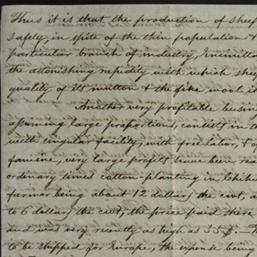 Thus it is that the production of sheep
safety in spite of the thin population &
particular branch of industry,
the astonishing rapidity with which sheep
quality of its mutton & the fine wool it
Another very profitable busin
assuming large proportions, consists in t
with singular facility, with free labor, &
famine, very large profits have been rea
ordinary times cotton-planting in
farmer being about 12 dollars the cwt, a
to 6 dollars the cwt; the price paid there
and was very recently as high as 35
to be shipped for Europe, the expense being